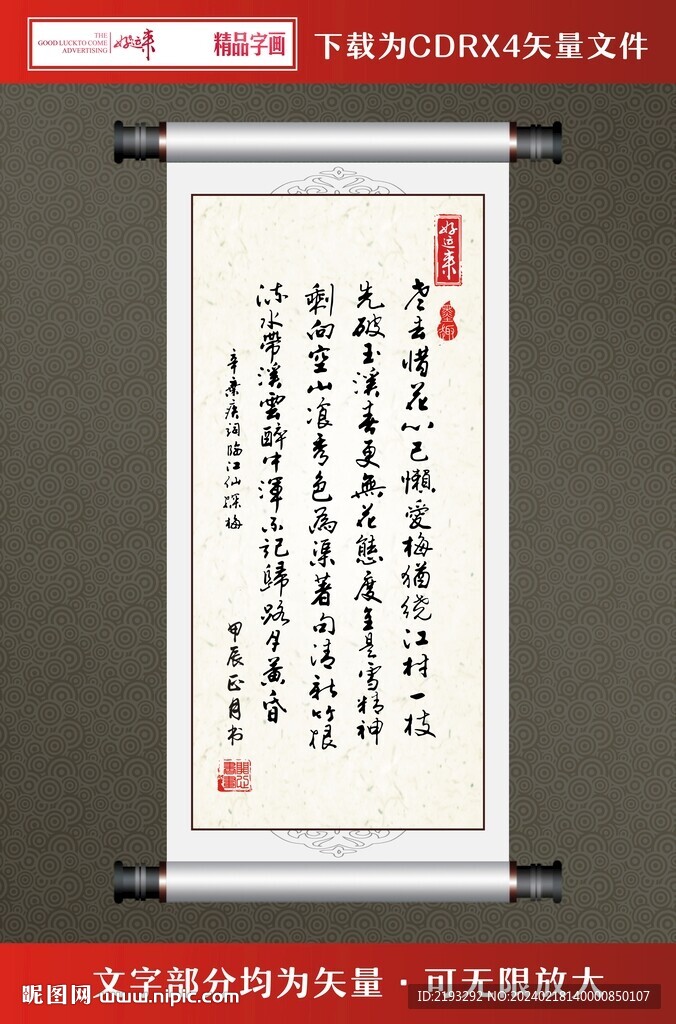 THE
GOOD LUCKTO COME
ADVERTISING
好运来
精品字画
下载为CDRX4矢量文件
好运来
墨趣
老去惜花心已懶愛梅猶绕江村一枝
先破玉溪春更無花態度全是雪精神
剩向空山飡秀色為渠著句清新竹根
流水帶溪雲醉中渾不記歸路月黃昏
辛棄疾词临江仙探梅
甲辰正月书
文字部分均为矢量·可无限放大
昵图网 www.nipic.com
ID:2193292 NO:20240218140000850107